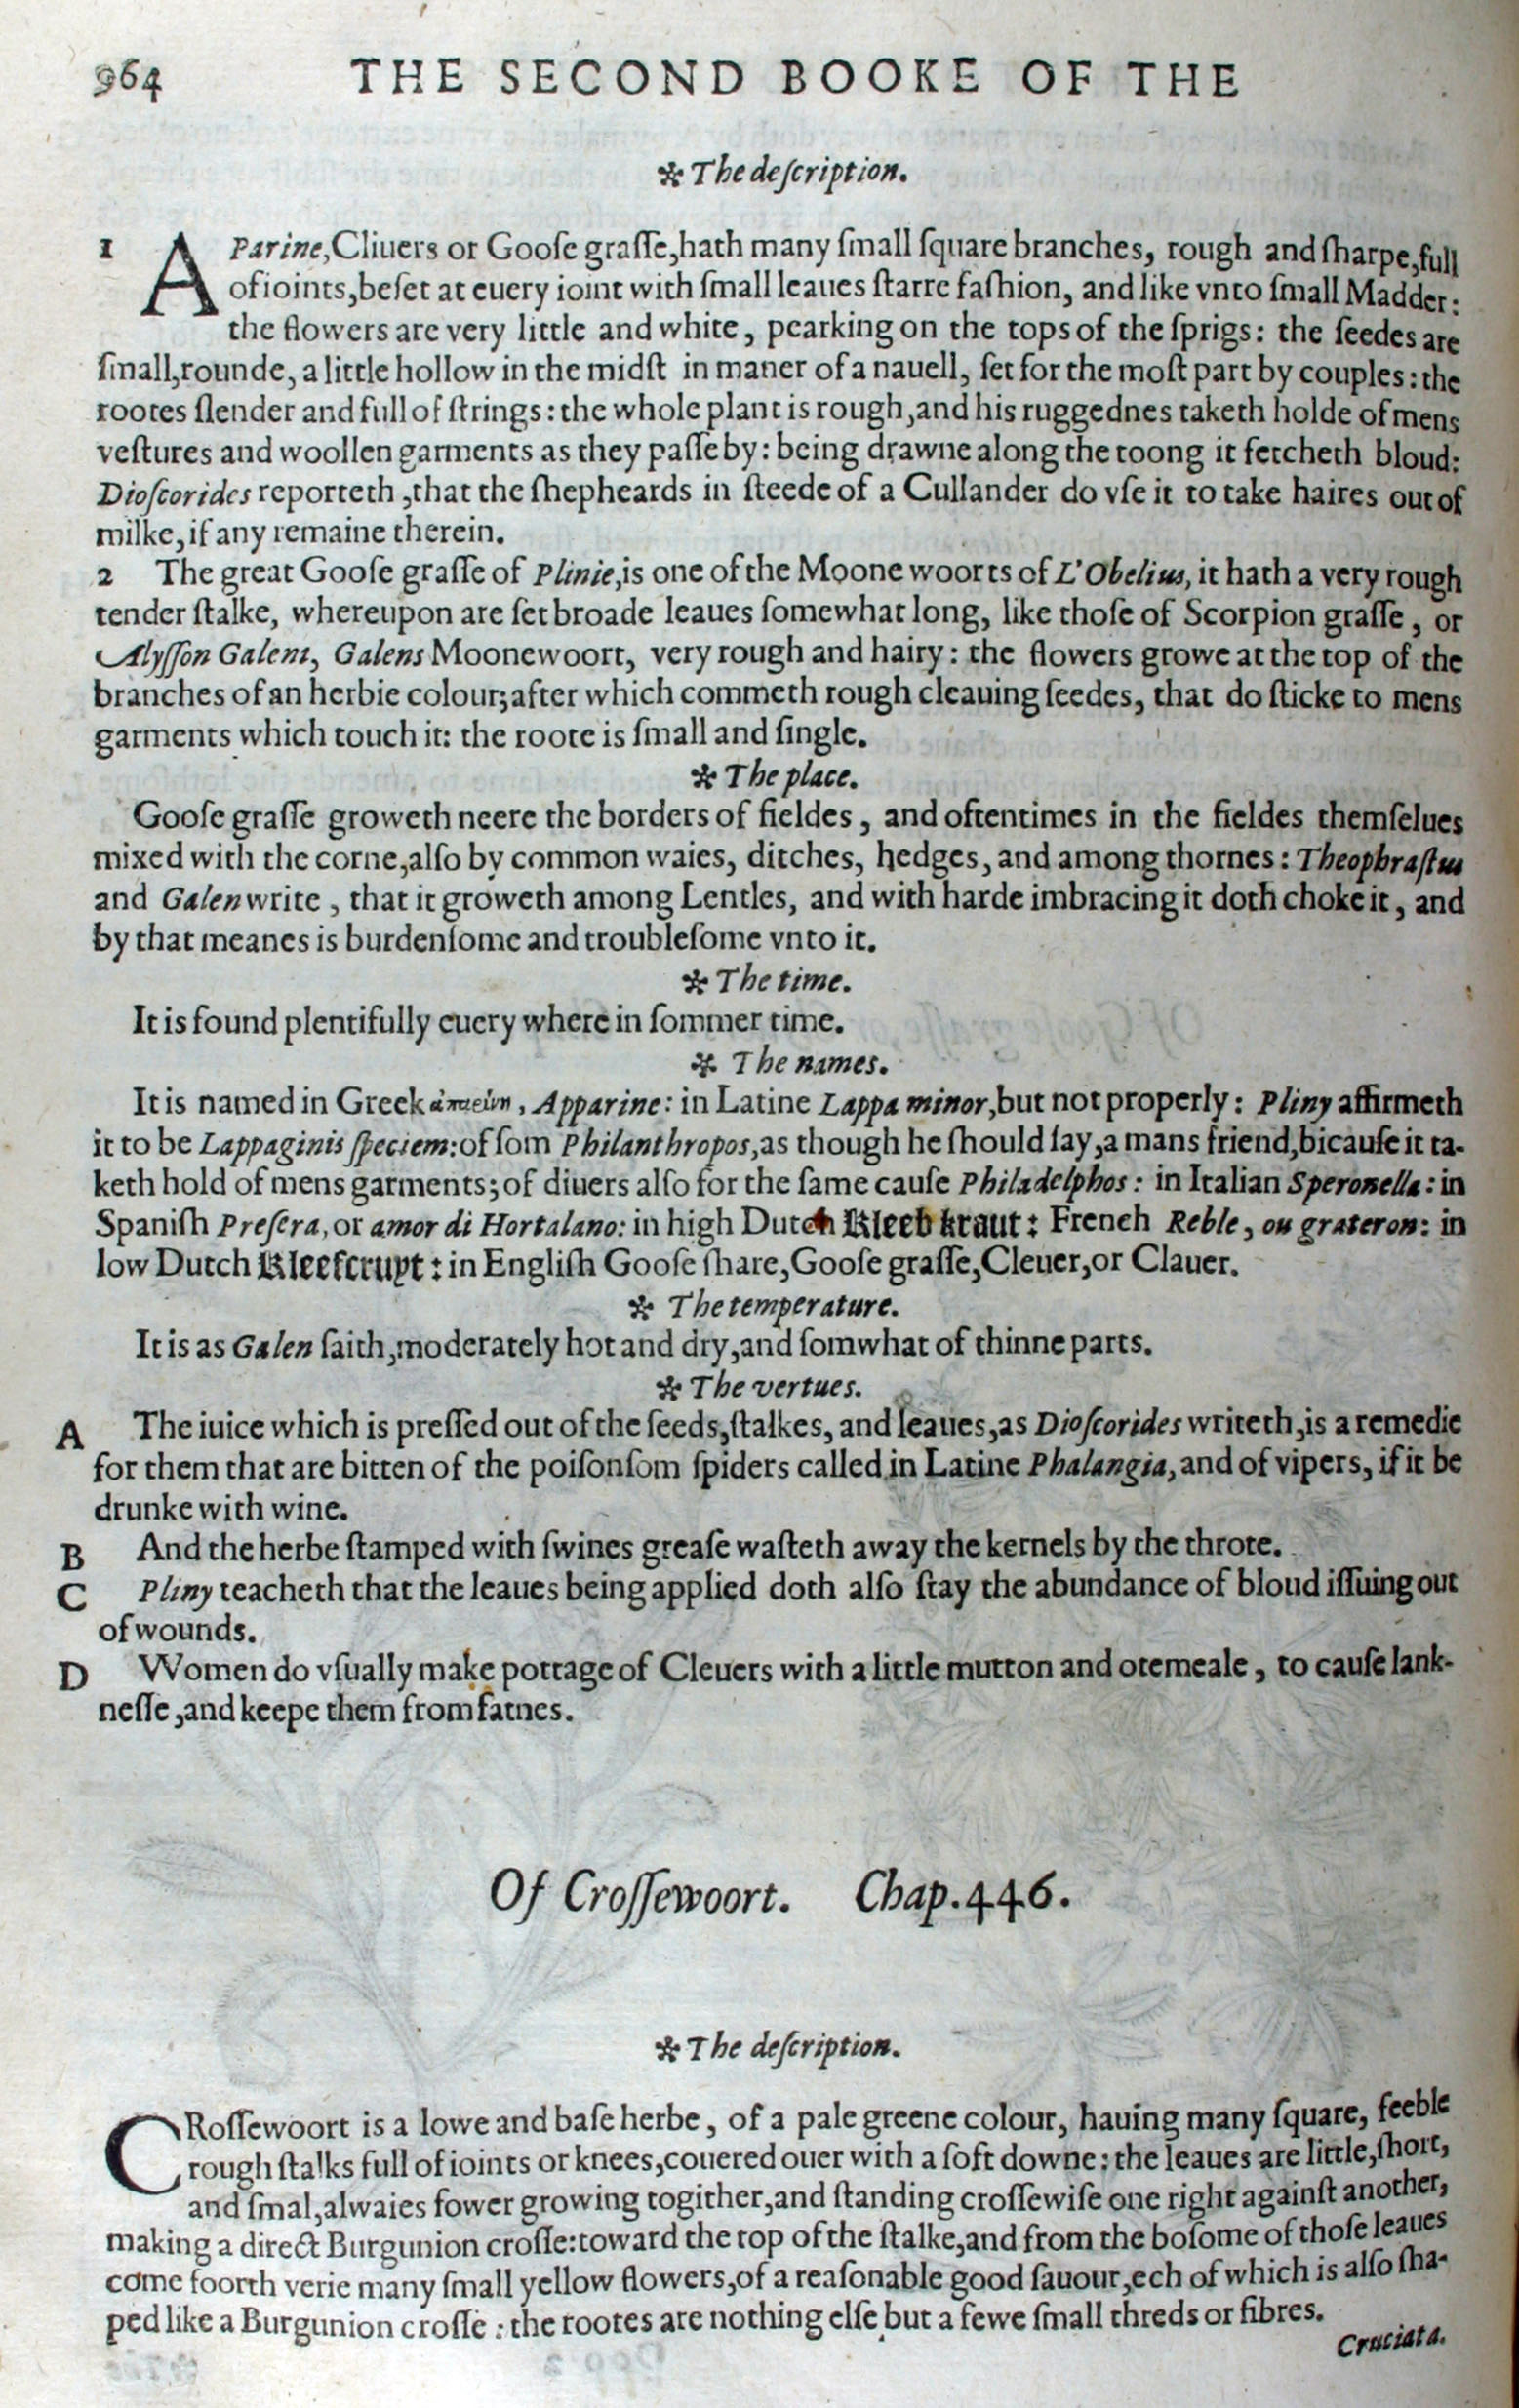 964 THE SECOND BOOKE OF THE
✲ The deſcription.
1 AParine, Cliuers or Gooſe graſſe, hath many ſmall ſquare branches, rough and ſharpe, full
of ioints, beſet at euery ioint with ſmall leaues ſtarre faſhion, and like vnto ſmall Madder:
the flowers are very little and white, pearking on the tops of the ſprigs: the ſeedes are
ſmall, rounde, a little hollow in the midſt in maner of a nauell, ſet for the moſt part by couples: the
rootes ſlender and full of ſtrings: the whole plant is rough, and his ruggednes taketh holde of mens
veſtures and woollen garments as they paſſe by: being drawne along the toong it fetcheth bloud:
Dioſcorides reporteth, that the ſhepheards in ſteede of a Cullander do vſe it to take haires out of
milke, if any remaine therein.
2 The great Gooſe graſſe of Plinie, is one of the Moone woorts of L'Obelius, it hath a very rough
tender ſtalke, whereupon are ſet broade leaues ſomewhat long, like thoſe of Scorpion graſſe, or
Alyſſon Galeni, Galens Moonewoort, very rough and hairy: the flowers growe at the top of the
branches of an herbie colour; after which commeth rough cleauing ſeedes, that do ſticke to mens
garments which touch it: the roote is ſmall and ſingle.
✲ The place.
Gooſe graſſe groweth neere the borders of fieldes, and oftentimes in the fieldes themſelues
mixed with the corne, alſo by common waies, ditches, hedges, and among thornes: Theophraſtus
and Galen write, that it groweth among Lentles, and with harde imbracing it doth choke it, and
by that meanes is burdenſome and troubleſome vnto it.
✲ The time.
It is found plentifully euery where in ſommer time.
✲ The names.
It is named in Greek , Apparine: in Latine Lappa minor, but not properly: Pliny affirmeth
it to be Lappaginis ſpeciem: of ſom Philanthropos, as though he ſhould ſay, a mans friend, bicauſe it ta-
keth hold of mens garments; of diuers alſo for the ſame cauſe Philadelphos: in Italian Speronella: in
Spaniſh Preſera, or amor di Hortalano: in high Dutch Kleeb kraut: French Reble, ou grateron: in
low Dutch Kleefcruyt: in Engliſh Gooſe ſhare, Gooſe graſſe, Cleuer, or Clauer.
✲ The temperature.
It is as Galen ſaith, moderately hot and dry, and ſomwhat of thinne parts.
✲ The vertues.
A The iuice which is preſſed out of the ſeeds, ſtalkes, and leaues, as Dioſcorides writeth, is a remedie
for them that are bitten of the poiſonſom ſpiders called in Latine Phalangia, and of vipers, if it be
drunke with wine.
B And the herbe ſtamped with ſwines greaſe waſteth away the kernels by the throte.
C Pliny teacheth that the leaues being applied doth alſo ſtay the abundance of bloud iſſuing out
of wounds.
D Women do vſually make pottage of Cleuers with a little mutton and otemeale, to cauſe lank-
neſſe, and keepe them from fatnes.
Of Croſſewoort. Chap. 446.
✲ The deſcription.
CRoſſewoort is a lowe and baſe herbe, of a pale greene colour, hauing many ſquare, feeble
rough ſtalks full of ioints or knees, couered ouer with a ſoft downe: the leaues are little, ſhort,
and ſmal, alwaies fower growing togither, and ſtanding croſſewiſe one right againſt another,
making a direct Burgunion croſſe: toward the top of the ſtalke, and from the boſome of thoſe leaues
come foorth verie many ſmall yellow flowers, of a reaſonable good ſauour, ech of which is alſo ſha-
ped like a Burgunion croſſe: the rootes are nothing elſe but a fewe ſmall threds or fibres.
Cruciata.